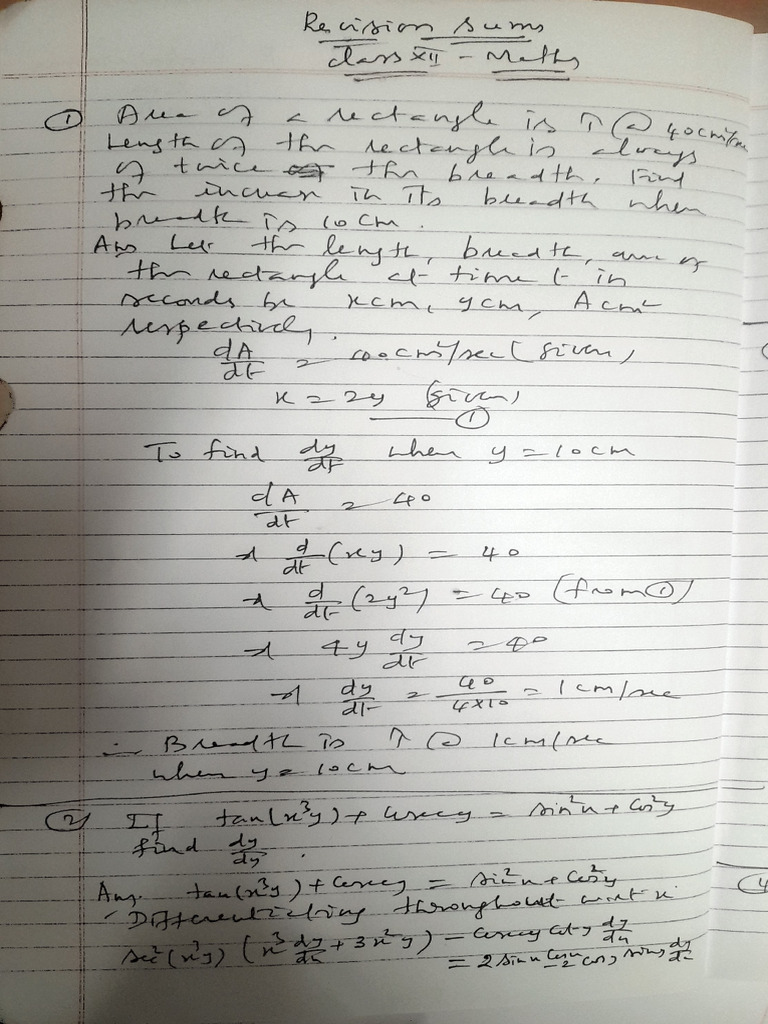 Revision sums
Class XII - Maths
① Area of a rectangle is ↑ @ 40cm²/sec
Length of the rectangle is always
of twice the breadth. Find
the increase in its breadth when
breadth is 10cm.
Ans Let the length, breadth, area of
the rectangle at time t in
seconds be x cm, y cm, A cm²
respectively.
dA/dt = cm²/sec (given)
x = 2y (given)
①
To find dy/dt when y = 10cm
dA/dt = 40
⇒ d/dt (xy) = 40
⇒ d/dt (2y²) = 40 (from ①)
⇒ 4y dy/dt = 40
⇒ dy/dt = 40/4×10 = 1cm/sec
∴ Breadth is ↑ @ 1cm/sec
when y = 10cm
② If tan(x³y) + cosecy = sin²x + cos²y
find dy/dx.
Ans. tan(x³y) + cosecy = sin²x + cos²y
Differentiating throughout w.r.t x.
sec²(x³y) (x³ dy/dx + 3x²y) - cosecy coty dy/dx
= 2 sinx cosx - 2 cosy siny dy/dx